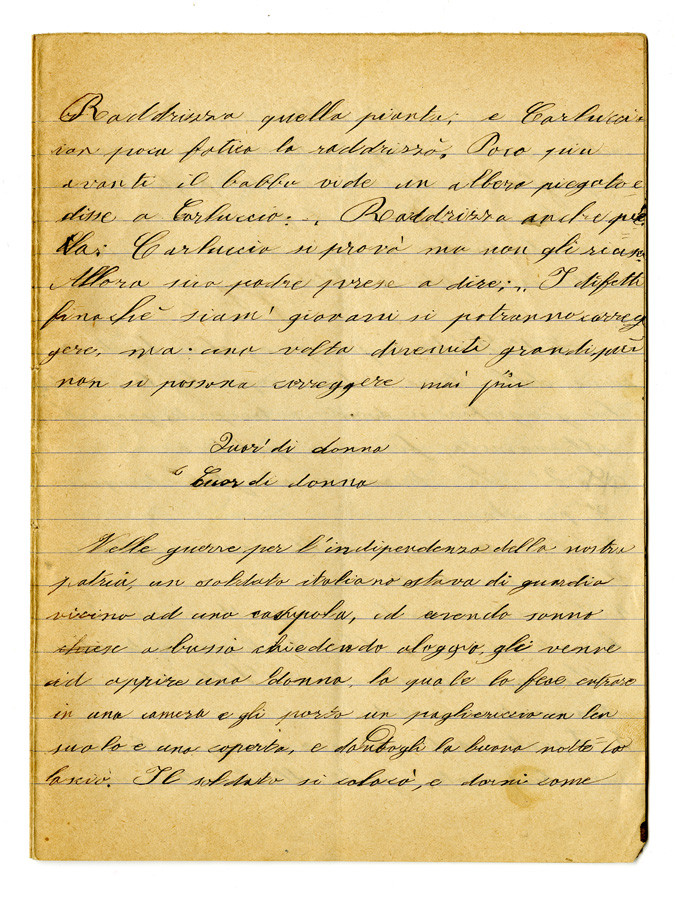 Raddrizza quella pianta; e Carlucci
con poca fatica la raddrizzò. Poco più
avanti il babbo vide un albero piegato e
disse a Carluccio: „ Raddrizza anche que
lla: Carluccio si provò ma non gli
Allora suo padre prese a dire: „ I difetti
finochè siam' giovani si potranno correg
gere, ma una volta divenuti grandi
non si possono correggere mai più
Quor' di donna
Cuor di donna
Nelle guerre per l'indipendenza della nostra
patria, un soldato italiano stava di guardia
vicino ad una cappola, ed avendo sonno
chiese a bussò chiedendo aloggio, gli venne
ad apprire una donna, la quale lo fece entrare
in una camera e gli porse un pagliericcio un len
suolo e una coperta, e dandogli la buona notte lo
lasciò. Il soldato si colocò, e dormì come